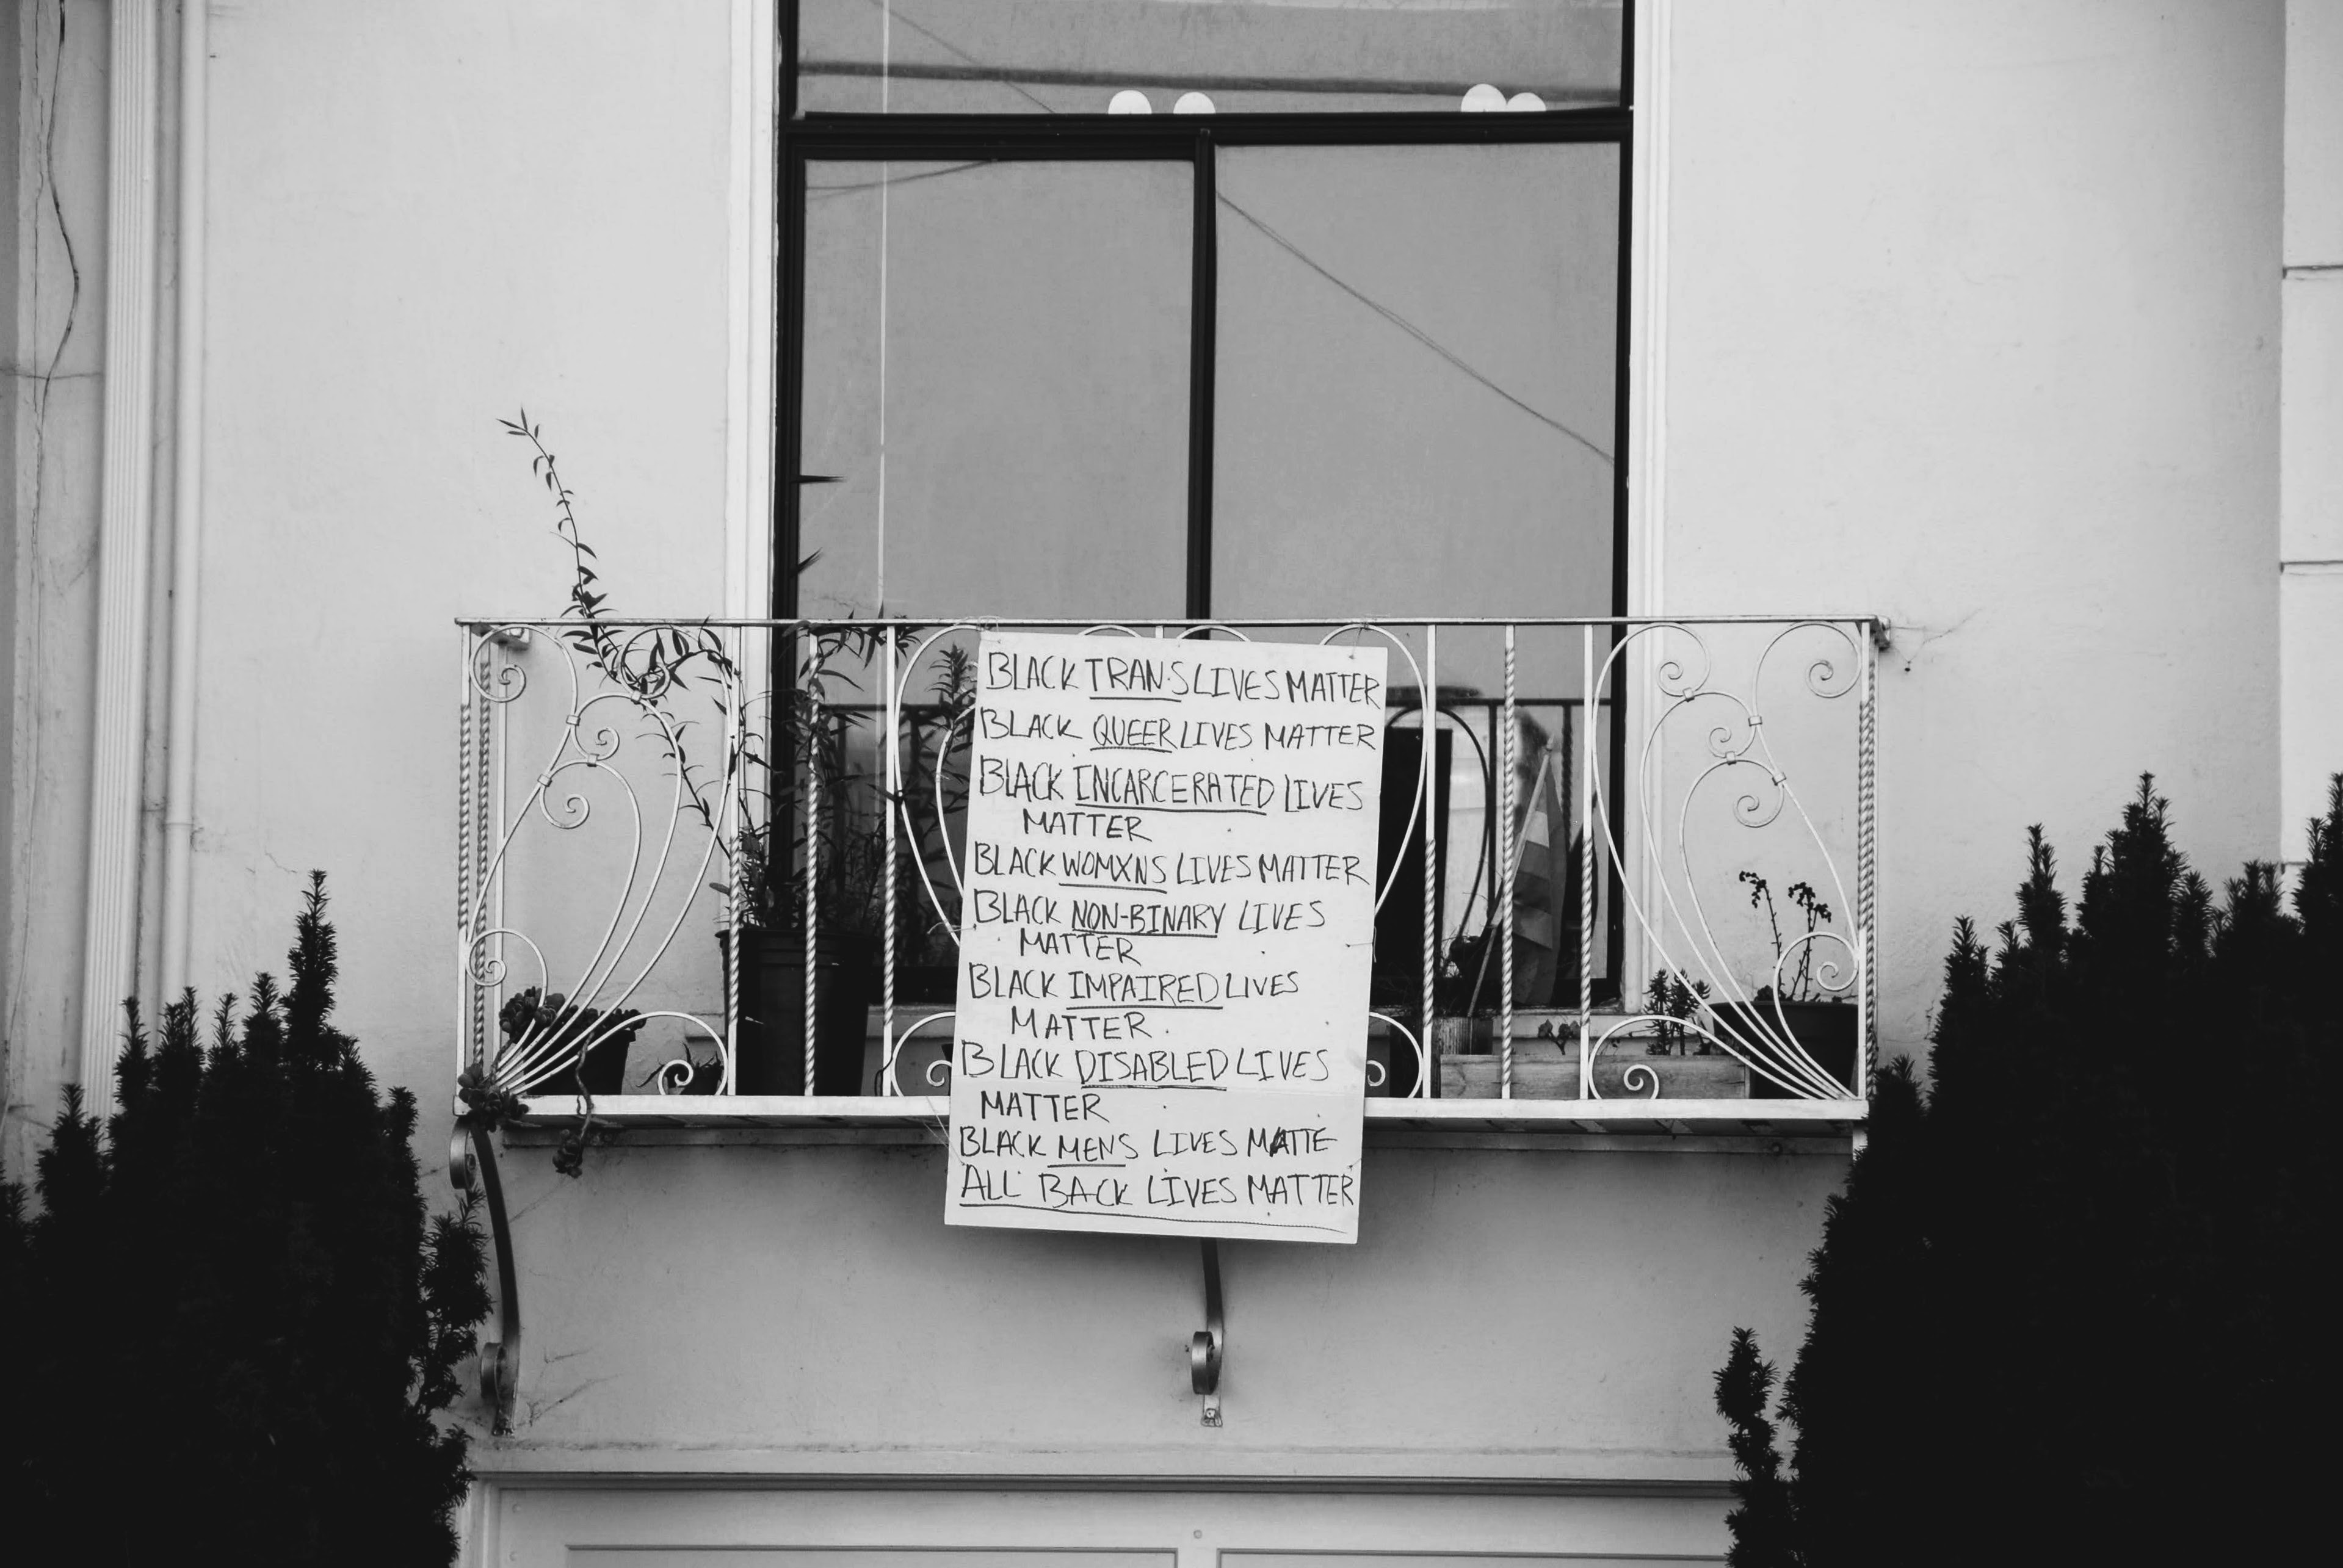 BLACK TRANS LIVES MATTER
BLACK QUEER LIVES MATTER
BLACK INCARCERATED LIVES
MATTER
BLACK WOMXNS LIVES MATTER
BLACK NON-BINARY LIVES
MATTER
BLACK IMPAIRED LIVES
MATTER
BLACK DISABLED LIVES
MATTER
BLACK MENS LIVES MATTE
ALL BACK LIVES MATTER